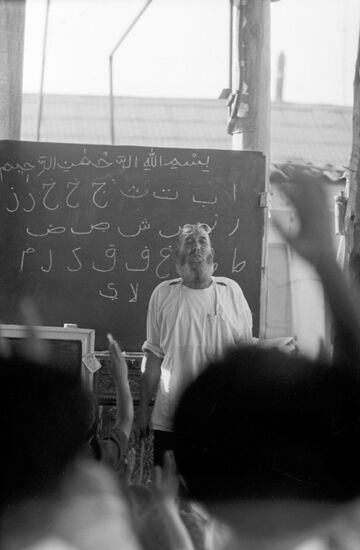 بسم الله الرحمن الرحيم
ا ب ت ث ج ح خ د ذ
ر ز س ش ص ض
ط غ ف ق ك ل م
لا ي